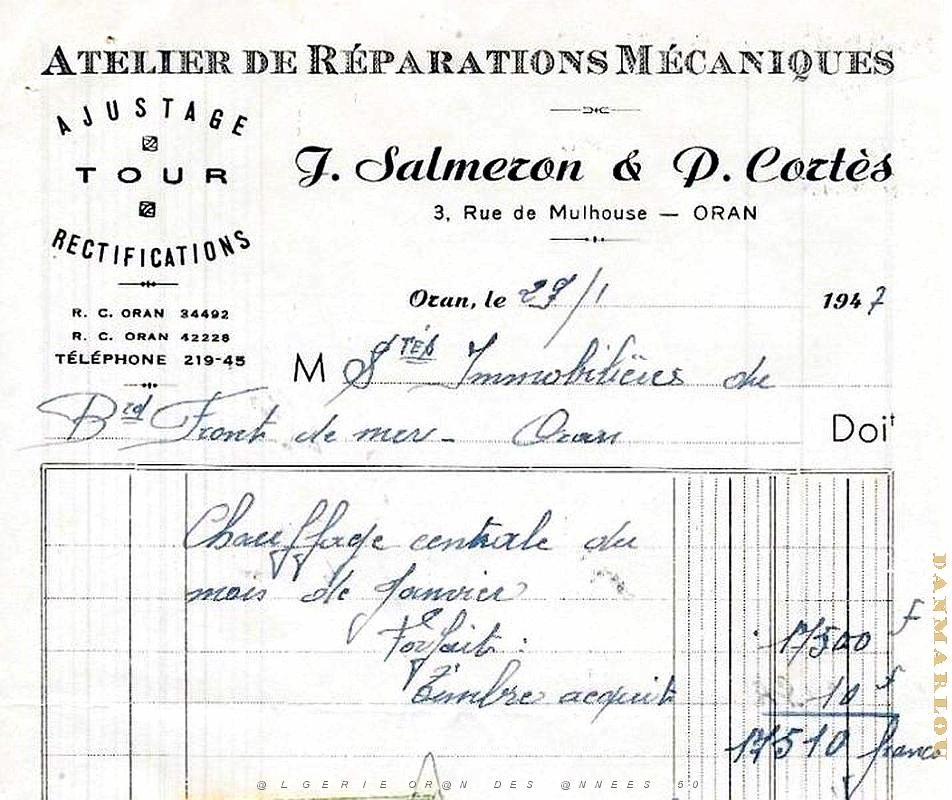 ATELIER DE RÉPARATIONS MÉCANIQUES
AJUSTAGE
TOUR
RECTIFICATIONS
R. C. ORAN 34492
R. C. ORAN 42228
TÉLÉPHONE 219-45
J. Salmeron & P. Cortès
3, Rue de Mulhouse — ORAN
Oran, le 27/1 1947
M Stés Immobilières du
Brd Front de mer - Oran Doit
Chauffage centrale du
mois de Janvier
Forfait : 17500 F
Timbre acquit 10 F
17510 francs
@LGERIE OR@N DES @NNEES 50
DANMARLOU